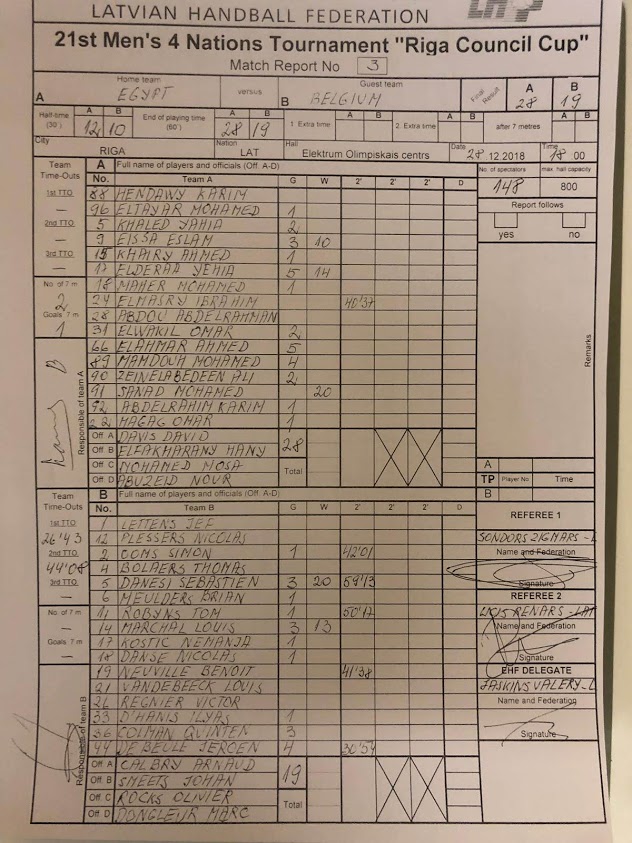 LATVIAN HANDBALL FEDERATION
21st Men's 4 Nations Tournament "Riga Council Cup"
Match Report No 3
Home team versus Guest team Final Result A B
A EGYPT B BELGIUM 28 19
Half-time (30') A B 12 10 End of playing time (60') A B 28 19 1. Extra time A B 2. Extra time A B after 7 metres A B
City RIGA Nation LAT Hall Elektrum Olimpiskais centrs Date 28 12.2018 Time 18 00
Team Time-Outs A Full name of players and officials (Off. A-D) No. of spectators 148 max. hall capacity 800
No. Team A G W 2' 2' 2' D
1st TTO — 88 HENDAWY KARIM
96 ELTAYAR MOHAMED 1 Report follows
2nd TTO — 5 KHALED YAHIA 2 yes no
9 EISSA ESLAM 3 10
3rd TTO — 15 KHAIRY AHMED 1
17 ELDERAA YEHIA 5 14
No. of 7 m 2 18 MAHER MOHAMED 1
24 ELMASRY IBRAHIM 40'37
Goals 7 m 1 28 ABDOU ABDELRAHMAN
31 ELWAKIL OMAR 2 Remarks
66 ELAHMAR AHMED 5
89 MAMDOUH MOHAMED 4
90 ZEINELABEDEEN ALI 2
91 SANAD MOHAMED 20
92 ABDELRAHIM KARIM 1
22 HAGAG OMAR 1
Responsible of team A
Off A DAVIS DAVID 28
Off B ELFAKHARANY HANY
Off C MOHAMED MOSA Total A
Off D ABUZEID NOUR TP Player No Time
B
Team Time-Outs B Full name of players and officials (Off. A-D)
No. Team B G W 2' 2' 2' D
REFEREE 1
1st TTO 26'43 1 LETTENS JEF
12 PLESSERS NICOLAS SONDORS ZIGMARS
2nd TTO 44'08 2 OOMS SIMON 1 42'01 Name and Federation
4 BOLAERS THOMAS
3rd TTO — 5 DANESI SEBASTIEN 3 20 59'13 Signature
6 MEULDERS BRIAN 1 REFEREE 2
No. of 7 m — 11 ROBYNS TOM 1 50'17 RENARS - LAT
14 MARCHAL LOUIS 3 13 Name and Federation
Goals 7 m — 17 KOSTIC NEMANJA 1
18 DANSE NICOLAS 1 Signature
19 NEUVILLE BENOIT 41'38 EHF DELEGATE
21 VANDEBEECK LOUIS JASKINS VALERY
26 REGNIER VICTOR Name and Federation
33 D'HANIS ILYAS 1
36 COLMAN QUINTEN 3 Signature
44 DE BEULE JEROEN 4 30'54
Responsible of team B
Off A CALBRY ARNAUD 19
Off B SMEETS JOHAN
Off C ROCKS OLIVIER Total
Off D DONGLEUR MARC